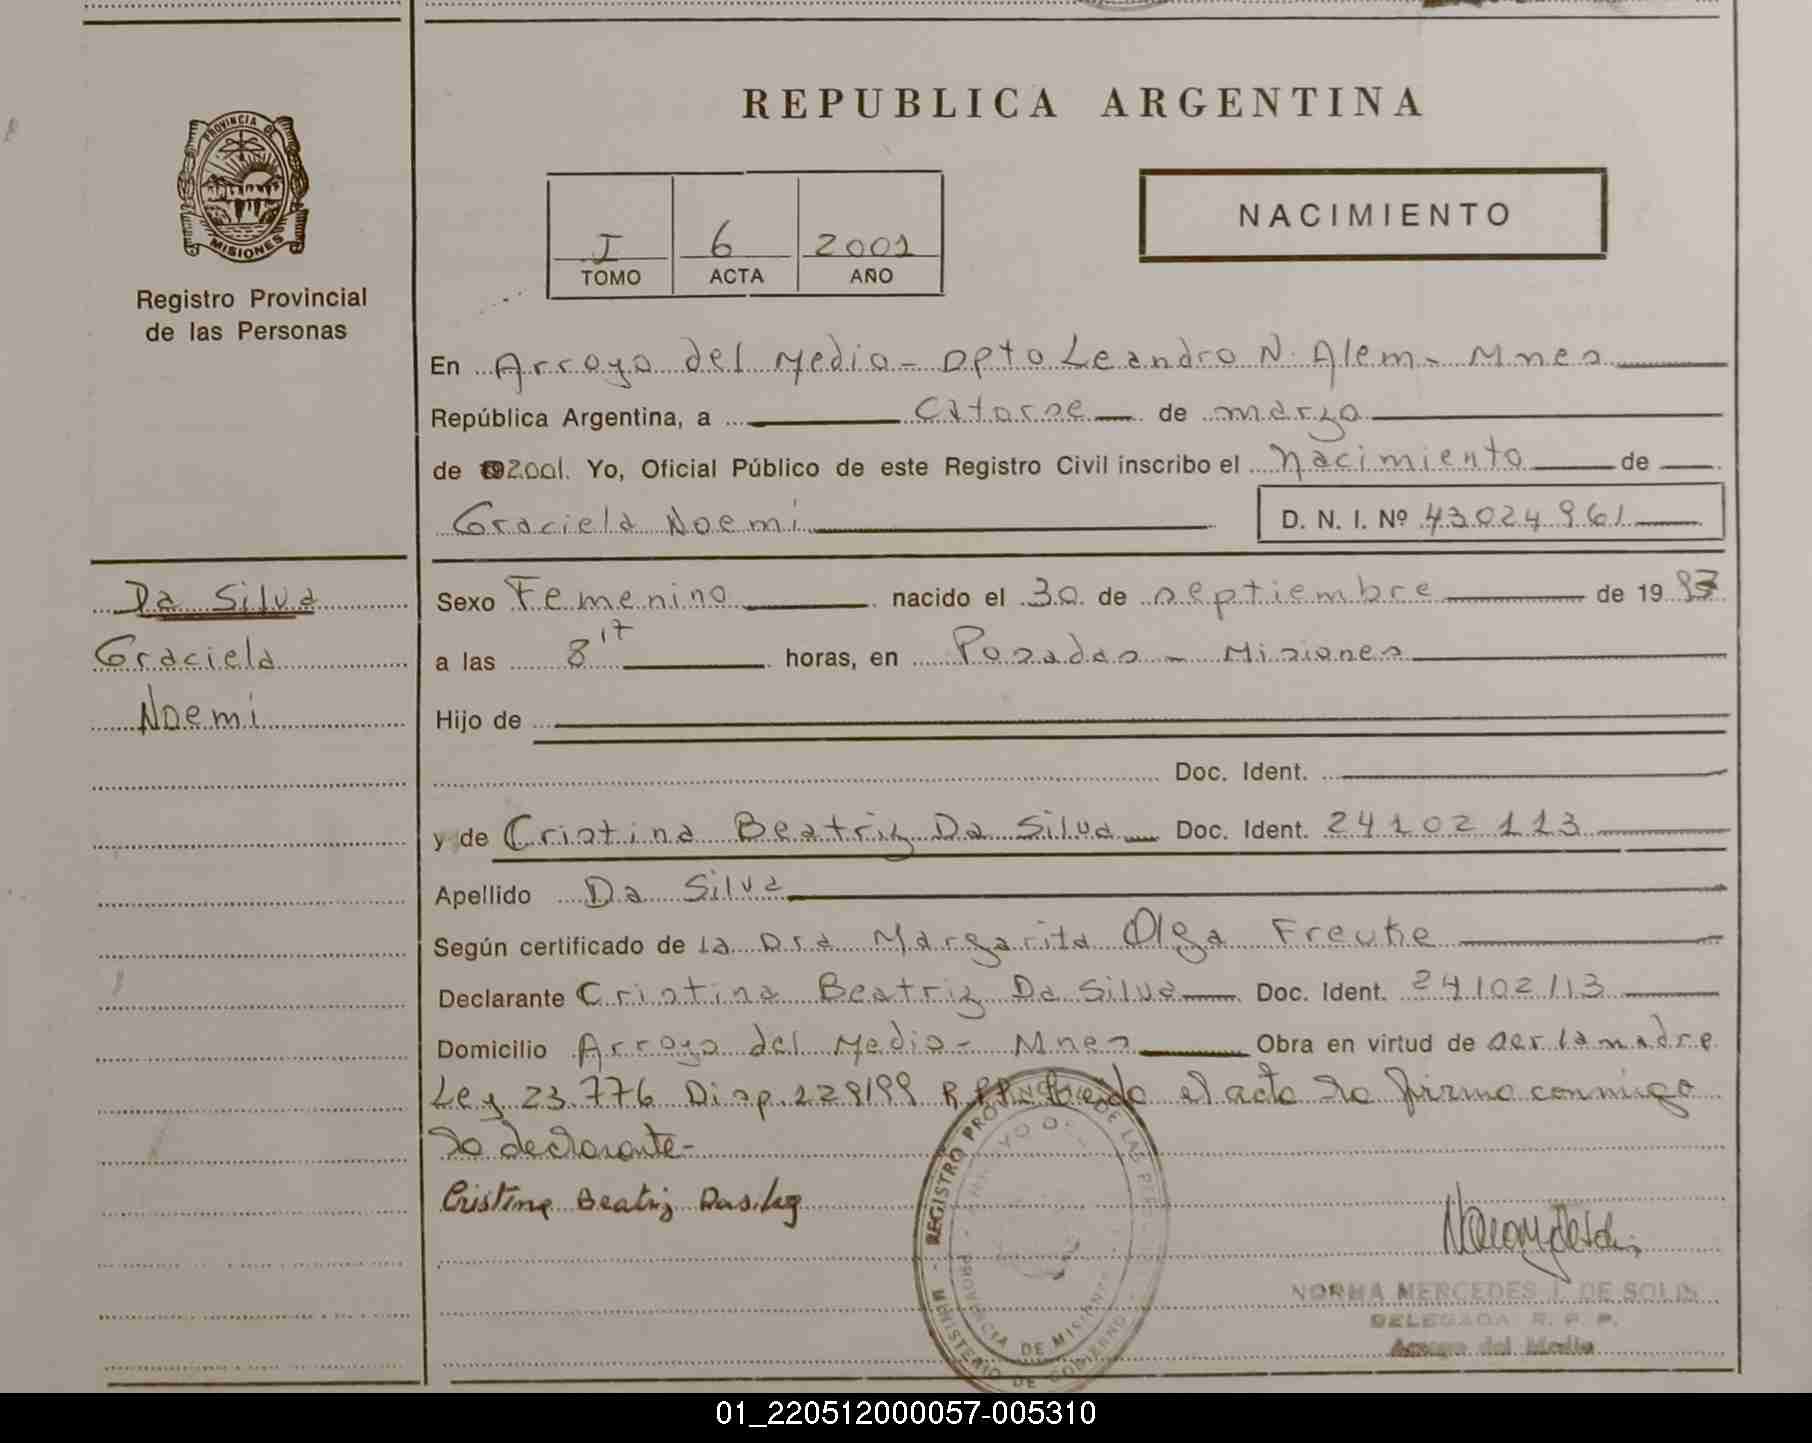 PROVINCIA DE
MISIONES
Registro Provincial
de las Personas
Da Silva
Graciela
Noemi
REPUBLICA ARGENTINA
I 6 2001
TOMO ACTA AÑO
NACIMIENTO
En Arroyo del Medio - Dpto Leandro N. Alem - Mnes
República Argentina, a Catorse de marzo
de 2001. Yo, Oficial Público de este Registro Civil inscribo el Nacimiento de
Graciela Noemi D. N. I. Nº 43024961
Sexo Femenino nacido el 30 de septiembre de 19
a las 8 17 horas, en Posadas - Misiones
Hijo de
Doc. Ident.
y de Cristina Beatriz Da Silva Doc. Ident. 24102113
Apellido Da Silva
Según certificado de la Dra Margarita Olga Freuke
Declarante Cristina Beatriz Da Silva Doc. Ident. 24102113
Domicilio Arroyo del Medio - Mnes Obra en virtud de ser la madre
Ley 23.776 Disp. 229/99 R.P.P. Leido el acta la firma conmigo
la declarante-
Cristina Beatriz Dasilva
REGISTRO PROVINCIAL DE LAS
MINISTERIO DE GOBIERNO
PROVINCIA DE MISIONES
NORMA MERCEDES J. DE SOLIS
DELEGADA R. P. P.
Arroyo del Medio
01_220512000057-005310